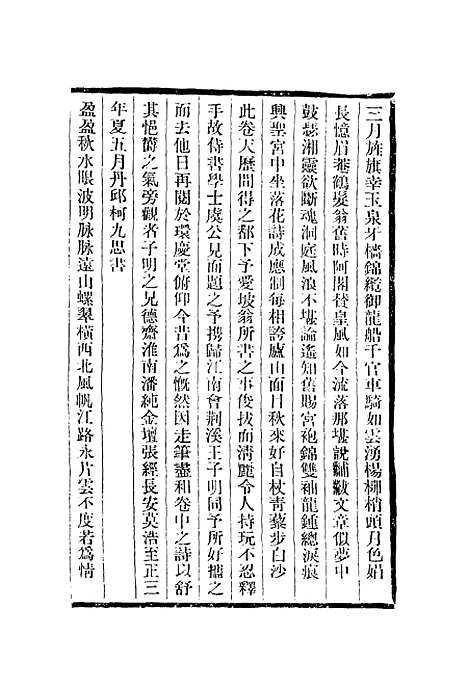 三月旌旗幸玉泉牙檣錦纜御龍船千官車騎如雲湧楊柳梢頭月色娟
長憶眉菴鶴髮翁舊時阿閣替皇風如今流落那堪說黼黻文章似夢中
鼓瑟湘靈欲斷魂洞庭風浪不堪論遙知舊賜宮袍錦雙袖龍鍾總淚痕
興聖宮中坐落花詩成應制每相誇廬山面目秋來好自杖靑藜步白沙
此卷天歷間得之都下予愛坡翁所書之事俊拔而淸麗令人持玩不忍釋
手故侍書學士虞公見而題之予携歸江南會荆溪王子明同予所好攜之
而去他日再閱於環慶堂俯仰今昔爲之慨然因走筆盡和卷中之詩以舒
其悒鬱之氣旁觀者子明之兄德齋淮南潘純金壇張經長安莫浩至正三
年夏五月丹邱柯九思書
盈盈秋水眼波明脉脉遠山螺翠橫西北風帆江路永片雲不度若爲情